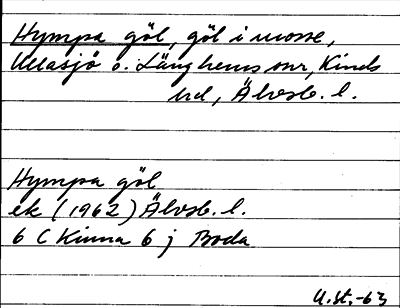 Hympa göl, göl i mosse,
Ullasjö o. Länghems snr, Kinds
hd, Älvsb. l.
Hympa göl
ek (1962) Älvsb. l.
6 C Kinna 6 j Boda
U.St.-63